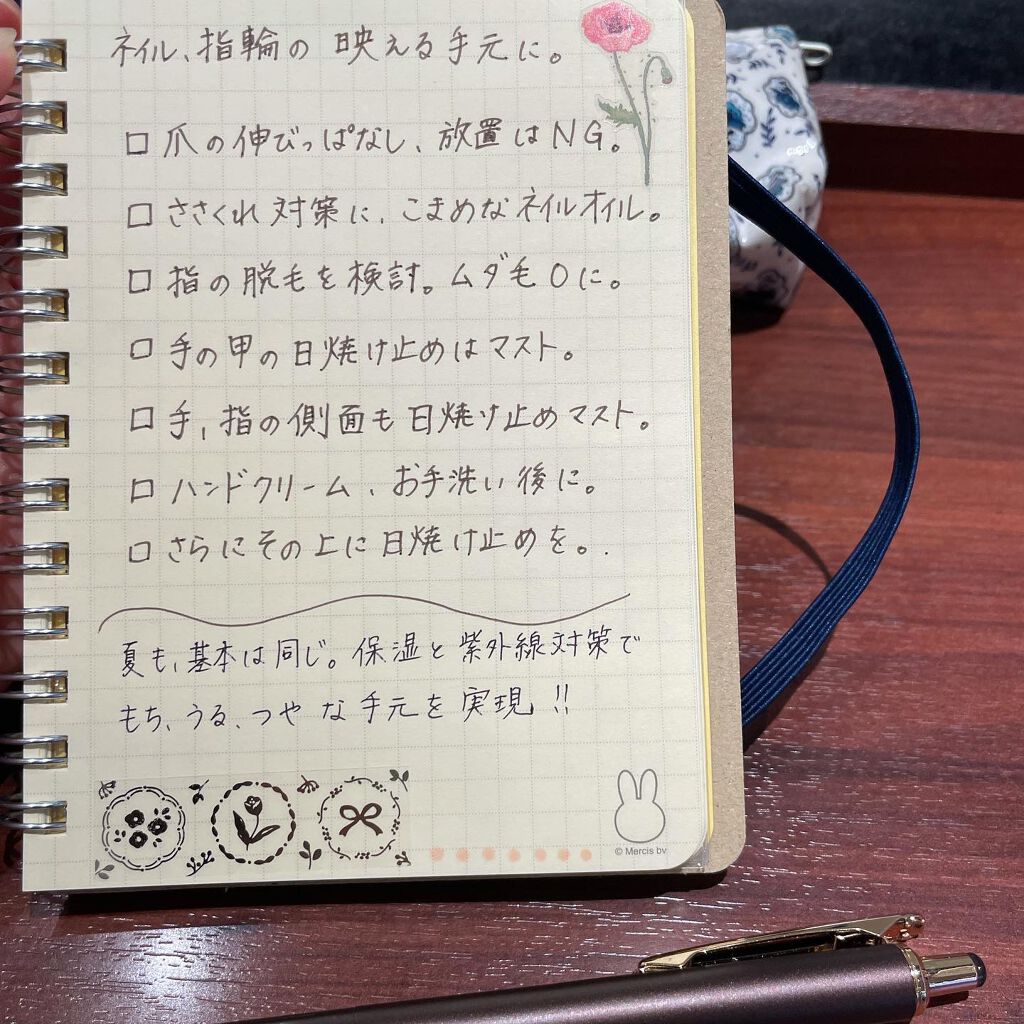 ネイル、指輪の映える手元に。
□ 爪の伸びっぱなし、放置はNG。
□ ささくれ対策に、こまめなネイルオイル。
□ 指の脱毛を検討。ムダ毛0に。
□ 手の甲の日焼け止めはマスト。
□ 手、指の側面も日焼け止めマスト。
□ ハンドクリーム、お手洗い後に。
□ さらにその上に日焼け止めを。.
夏も、基本は同じ。保湿と紫外線対策で
もち、うる、つやな手元を実現!!
© Mercis bv